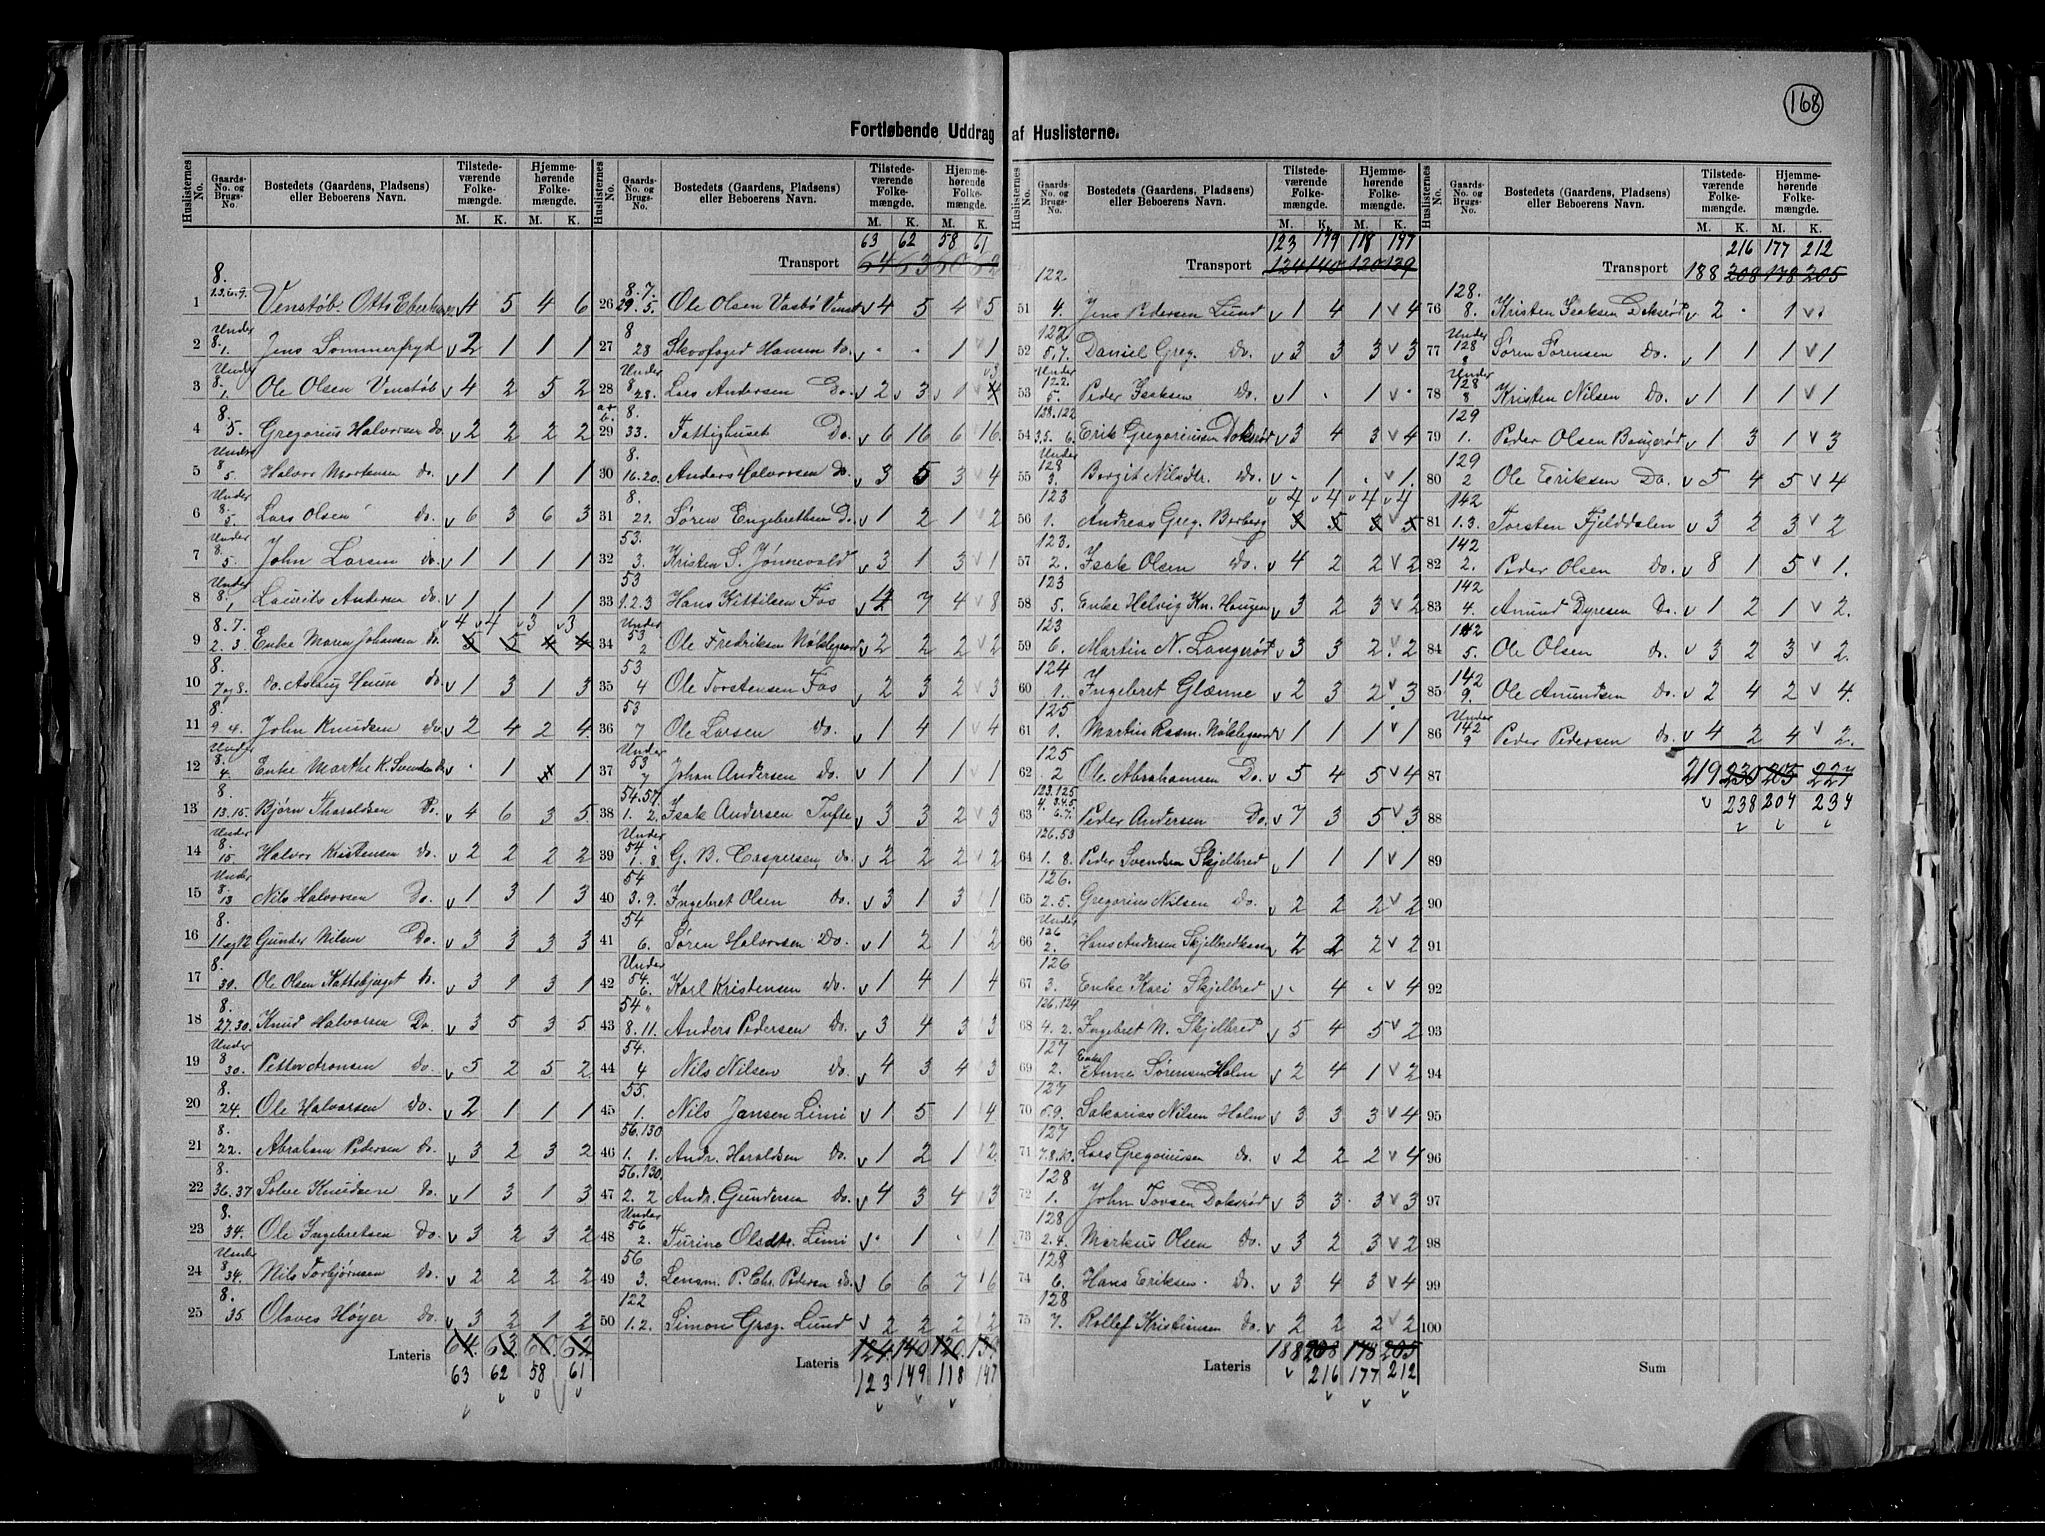 168
Fortløbende Uddrag af Huslisterne.
Huslisternes No. | Gaards-No. og Brugs-No. | Bostedets (Gaardens, Pladsens) eller Beboerens Navn. | Tilstedeværende Folkemængde. M. K. | Hjemmehørende Folkemængde. M. K.
1 8. 1.3.6.9. Venstøb Otto Eberh 4 5 4 6
2 Under 8. 1. Jens Sommerfryd 2 1 1 1
3 Under 8. 1. Ole Olsen Venstøb 4 2 5 2
4 8. 5. Gregorius Halvorsen do 2 2 2 2
5 Under 8 5. Halvor Mortensen do. 1 1 1 1
6 Under 8. 5. Lars Olsen do. 6 3 6 3
7 Under 8. 5. John Larsen do. 1 1 1 1
8 Under 8. 1 Laurits Andersen do. 1 1 1 1
9 8. 7. 2. 3 Enke Maren Johansen do. 4 4 3 3
5 5 4 4
10 8. 7 og 8. do. Aslaug do. 1 3 1 3
11 8. 9 4. John Knudsen do. 2 4 2 4
12 Under 8. 4. Enke Marthe K. Svendsen do. · 1 1
13 8. 13.15. Bjørn Tharaldsen Do. 4 6 3 5
14 Under 8. 15. Halvor Kristensen do. 2 2 2 2
15 Under 8. 13 Nils Halvorsen do. 1 3 1 3
16 8. 11 og 12 Gunder Nilsen Do. 3 3 3 3
17 8. 39. Ole Olsen Kattebjerget do. 3 1 3 1
18 8. 27.30. Knud Halvorsen Do. 3 5 3 5
19 Under 8 30. Petter Aronsen do. 5 2 5 2
20 8. 24. Ole Halvorsen do. 2 1 1 1
21 8. 22. Abraham Pedersen do. 3 2 3 2
22 8. 36.37 Solve Knudsen do. 1 3 1 3
23 8. 34. Ole Ingebretsen do. 3 2 3 2
24 Under 8 34. Nils Torbjørnsen do. 2 2 2 2
25 8. 35. Olaves Høyer do. 3 2 1 2
Lateris 64. 63. 60. 62.
63 62 58 61
63 62 58 61
Transport 64 63 60 62
26 8. 7. 29. 5. Ole Olsen Vasbø Venst 4 5 4 5
27 8 28 Skovfoged Hansen do. · · 1 1
28 Under 8 28. Lars Andersen Do. 2 3 1 4
3
29 a+b. 8. 33. Fattighuset Do. 6 16 6 16
30 8. 16.20. Anders Halvorsen do. 3 5 3 4
31 8. 21. Søren Engebrethsen D. 1 2 1 2
32 53. 3. Kristen S. Jønnevald 3 1 3 1
33 53 1.2.3 Hans Kittilsen Fos 4 7 4 8
34 Under 53 2 Ole Fredriksen Nøklegaard 2 2 2 2
35 53 4 Ole Torstensen Fos 2 3 2 3
36 53 7 Ole Larsen do. 1 4 1 4
37 Under 53 7 Johan Andersen do. 1 1 1 1
38 54.57. 1. 2. Isak Andersen Tufte 3 3 2 3
39 Under 54 1. 8. G. B. Caspersen, do. 2 2 2 2
40 54 3. 9. Ingebret Olsen do. 3 1 3 1
41 54 6. Søren Halvorsen Do. 1 2 1 2
42 Under 54. 6. Karl Kristensen do. 1 4 1 4
43 54 " 8. 11. Anders Pedersen do. 3 4 3 3
44 54. 4 Nils Nilsen do. 4 3 4 3
45 55. 1. Nils Jansen Limi 1 5 1 4
46 56.130 1. 1. Andr. Haraldsen do. 1 2 1 2.
47 56.130. 2. 2 Andr. Gundersen do. 4 3 4 3
48 Under 56 2. Turine Olsdtr. Limi · 1 · 1
49 56 3. Lensm. P. Chr. Pedersen do. 6 6 7 6
50 122 1.2. Simon Greg. Lund 2 2 2 2
Lateris 124. 140 120. 139.
123 149 118 147
123 149 118 147
Transport 124 140 120 139
51 122. 4. Jens Pedersen Lund 1 4 1 4
52 122. 5.7. Daniel Greg. do. 3 3 3 3
53 Under 122. 5. Peder Isaksen do. 1 · 1 ·
54 128.122 3.5. 6. Erik Gregoriussen Doksrød 3 4 3 4
55 Under 128 3. Borgit Nilsdtr. do. · 1 · 1.
56 123 1. Andreas Greg. Borberg 4 4 4 4
3 5 3 5
57 123. 2. Isak Olsen do. 4 2 2 2
58 123 5. Enke Helvig Kn. Haugen 3 2 3 2
59 123 6. Martin N. Langerød 3 3 2. 2
60 124 1. Ingebret Glænne 2 3 2 3
61 125 1. Martin Rasm. Nøklegaard 1 1 1 1
62 125 2 Ole Abrahamsen Do. 5 4 5 4
63 123.125 4. 3.4.5. 6.7. Peder Andersen Do. 7 3 5 3
64 126.53 1. 8. Peder Svendsen Skjelbred 1 1 1 1
65 126. 2.5. Gregorius Nilsen do. 2 2 2 2
66 Under 126 2. Hans Andersen Skjelbred 2 2 2 2
67 126 3. Enke Kari Skjelbred · 4 · 4
68 126.124 4. 2. Ingebret N. Skjelbred 5 4 5 2
69 127 2. Enke Anne Sørensen Holm 2 4 1 2
70 127 5.9. Sakarias Nilsen Holm 3 3 3 4
71 127 7.8.10. Lars Gregoriusen do. 2 2 2 4
72 128 1. John Tovsen Doksrød 3 3 3 3
73 128 2.4. Markus Olsen do. 3 2 3 2
74 128 6. Hans Eriksen. do. 3 4 3 4
75 128 7. Rollef Kristiansen do. 2 2 2 2
Lateris 188 208 178 205
216 177 212
216 177 212
Transport 188 208 178 205
76 128. 8. Kristen Isaksen Doksrød 2 · 1 ·
77 Under 128 8 Søren Sørensen do. 1 1 1 1
78 Under 128 8 Kristen Nilsen do. 1 1 1 1
79 129 1. Peder Olsen Baugerød 1 3 1 3
80 129 2 Ole Eriksen Do. 5 4 5 4
81 142 1.3. Torsten Fjelddalen 3 2 3 2
82 142 2. Peder Olsen Do. 8 1 5 1.
83 142 4. Amund Dyresen Do. 1 2 1 2.
84 142 5. Ole Olsen do. 3 2 3 2.
85 142 9. Ole Amundsen do. 2 4 2 4.
86 Under 142 9 Peder Pedersen do. 4 2 4 2.
87 219 230 205 227
88 238 204 234
89
90
91
92
93
94
95
96
97
98
99
100
Sum